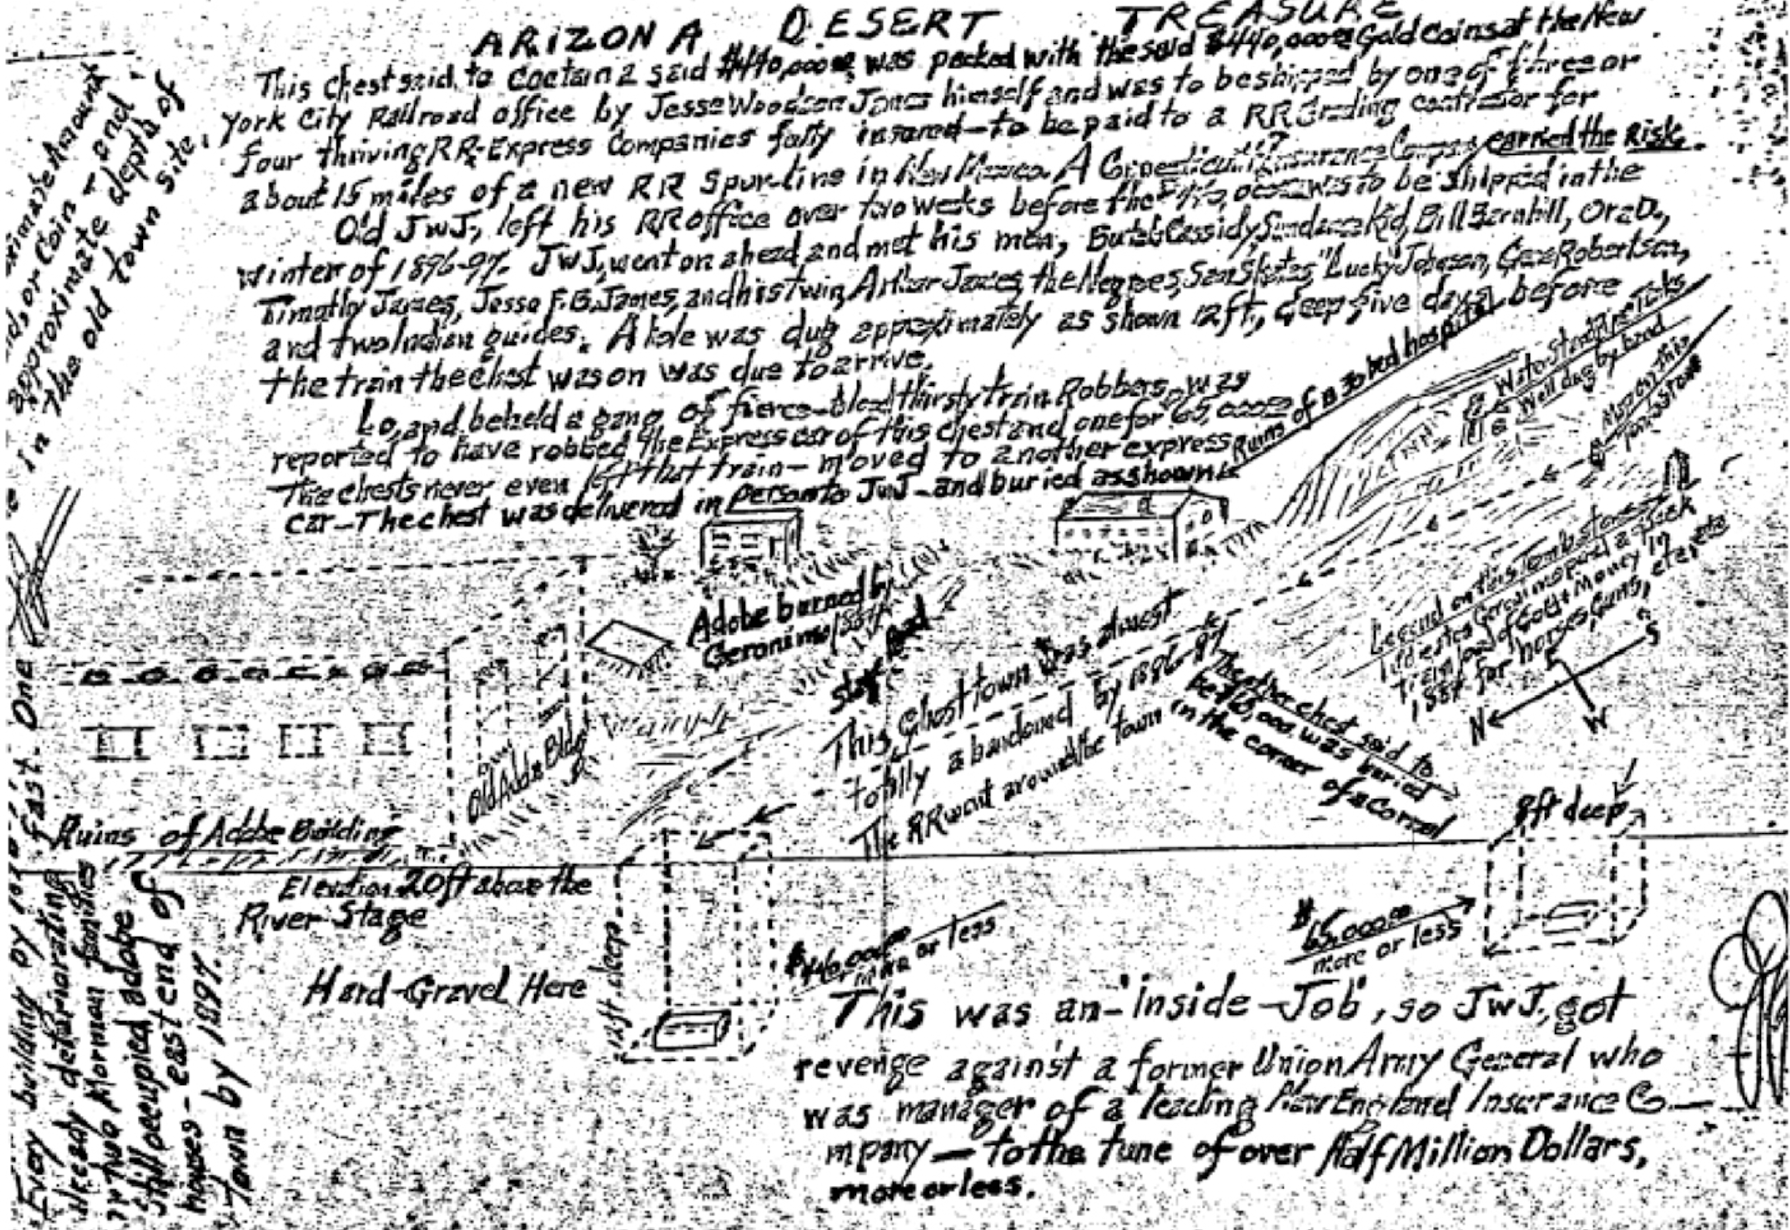 ARIZONA DESERT TREASURE
This chest said to contain a said $440,000.00 was packed with the said $440,000.00 Gold coins at the New
York City Railroad office by Jesse Woodson James himself and was to be shipped by one of three or
four thriving RR-Express Companies fully insured - to be paid to a RR Grading contractor for
about 15 miles of a new RR Spur-line in New Mexico. A Connecticut Insurance Company carried the risk.
Old JWJ, left his RR office over two weeks before the was to be shipped in the
winter of 1896-97. JWJ, went on ahead and met his men, Butch Cassidy, Sundance Kid, Bill Barnhill, Ora D.,
Timothy James, Jesse F.G. James, and his twin, Arthur James, the Negroes, Sam "Lucky" Johnson, Robertson,
and two Indian guides. A hole was dug approximately as shown 12ft, deep five days before
the train the chest was on was due to arrive.
Lo, and beheld a gang of fierce-blood thirsty train Robbers, was
reported to have robbed the Express car of this chest and one for 65,000.00
The chests never even left that train - moved to another express
car - The chest was delivered in person to JWJ - and buried as shown
Ruins of a 30 bed hospital
Water Stand
Well dug by
Also on this
tombstone
Legend on this Tombstone
Geronimo paid a
of Gold & Money in
for horses, Guns, etc
N
S
E
W
Adobe burned by
Geronimo
Road
This Ghost town was almost
totally abandoned by 1896-97
The RR went around the town
The other chest said to
be $65,000 was buried
in the corner of a Corral
8ft deep
Old Adobe Bldg
Ruins of Adobe Building
Elevation 20ft above the
River Stage
Hard-Gravel Here
12ft deep
$440,000.00
more or less
$65,000.00
more or less
This was an-"inside-Job", so JWJ, got
revenge against a former Union Army General who
was manager of a leading New England Insurance Co-
mpany - to the tune of over Half Million Dollars,
more or less.
Amount
or Coin - and
approximate depth of
in the old town site.
Every building by
already deteriorating
or two Morman families
still occupied adobe
houses - east end of
Town by 1897.
fast. One